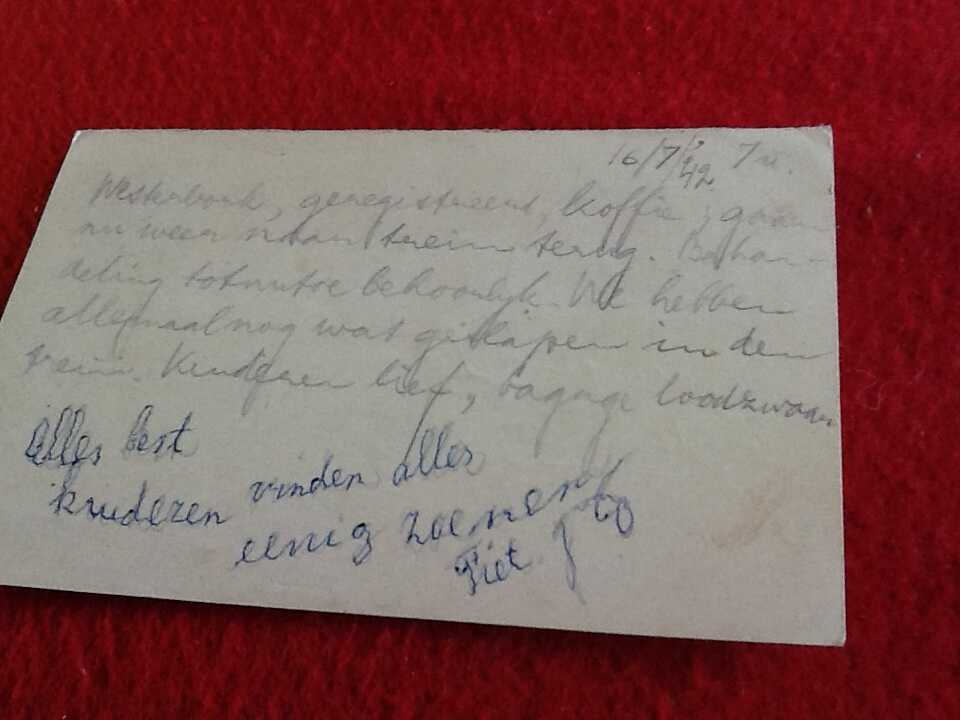 16/7/'42 7 u.
Westerbork, geregistreerd, koffie, gaan
nu weer naar trein terug. Behan-
deling totnutoe behoorlijk. We hebben
allemaal nog wat geslapen in den
trein. Kinderen lief, bagage loodzwaar
alles best
kinderen vinden alles
eenig zoenen
Tiet J